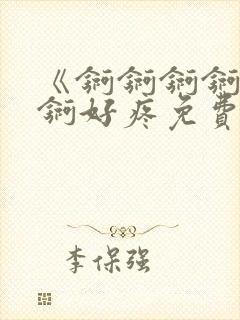 《锕锕锕锕
锕好疼免费
李保强